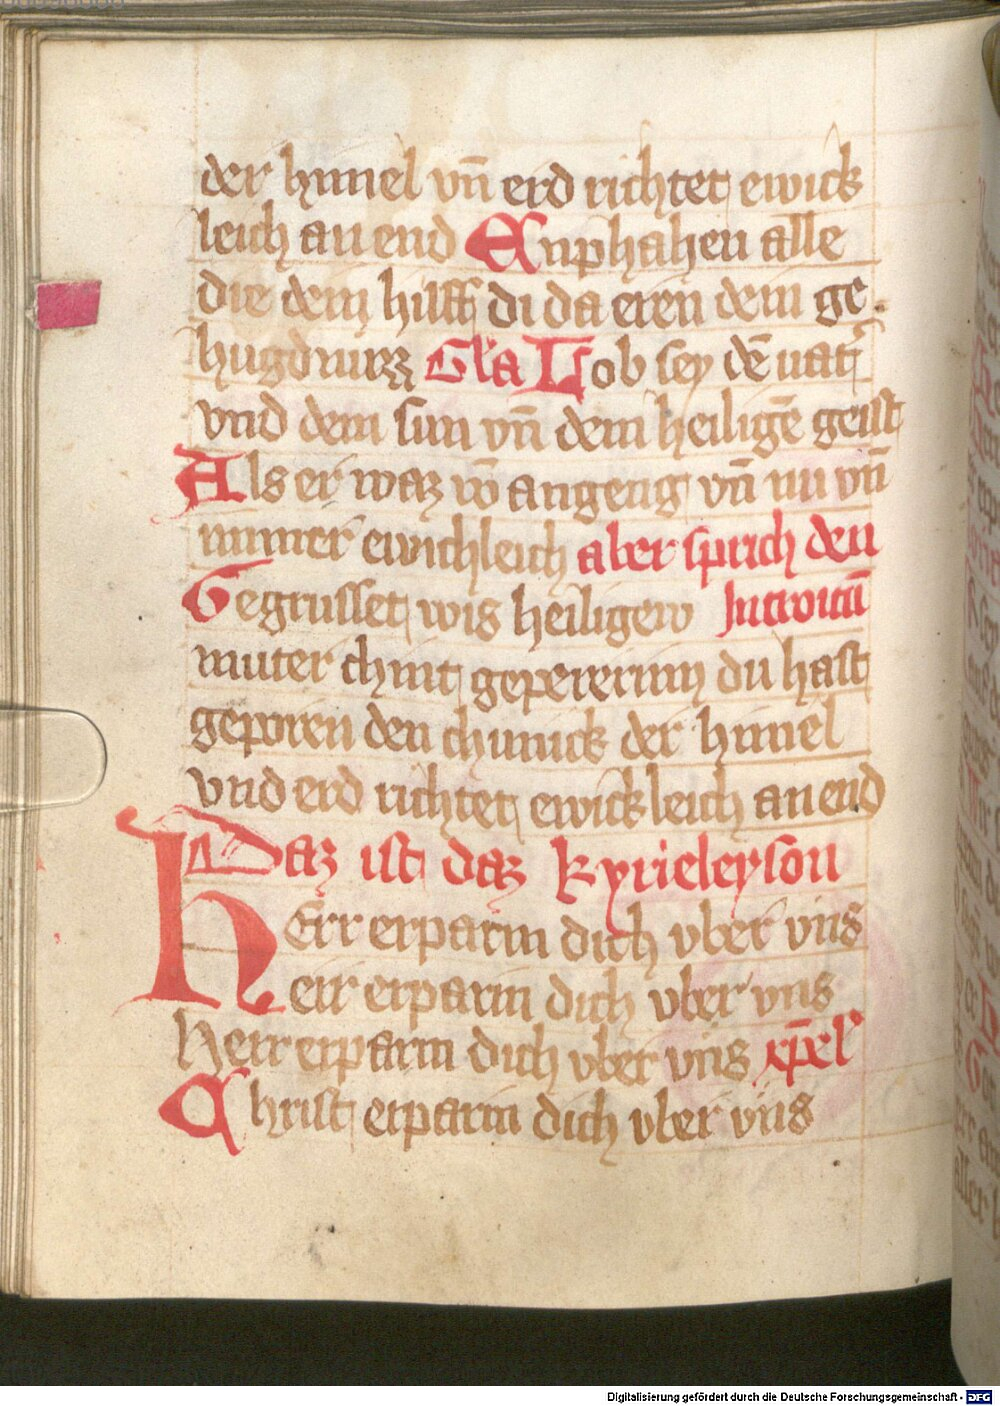 der himel vn̄ erd richtet ewick
leich an end Enphahen alle
die dein hilff di da eren dein ge
hugdnuzz Gl'a Lob sey dē uat'
vnd dem sun vn̄ dem heiligē geist
Als er waz vō angeng vn̄ nu vn̄
nimer ewichleich aber sprich den
Gegrusset wis heiligew Introitū
muter chint gepererinn du hast
geporen den chunick der himel
vnd erd richtet ewickleich an end
Daz ist daz kyrieleyson
HErr erparm dich vber vns
herr erparm dich vber vns
Herr erparm dich vber vns xp̄el'
Christ erparm dich vber vns
Digitalisierung gefördert durch die Deutsche Forschungsgemeinschaft - DFG